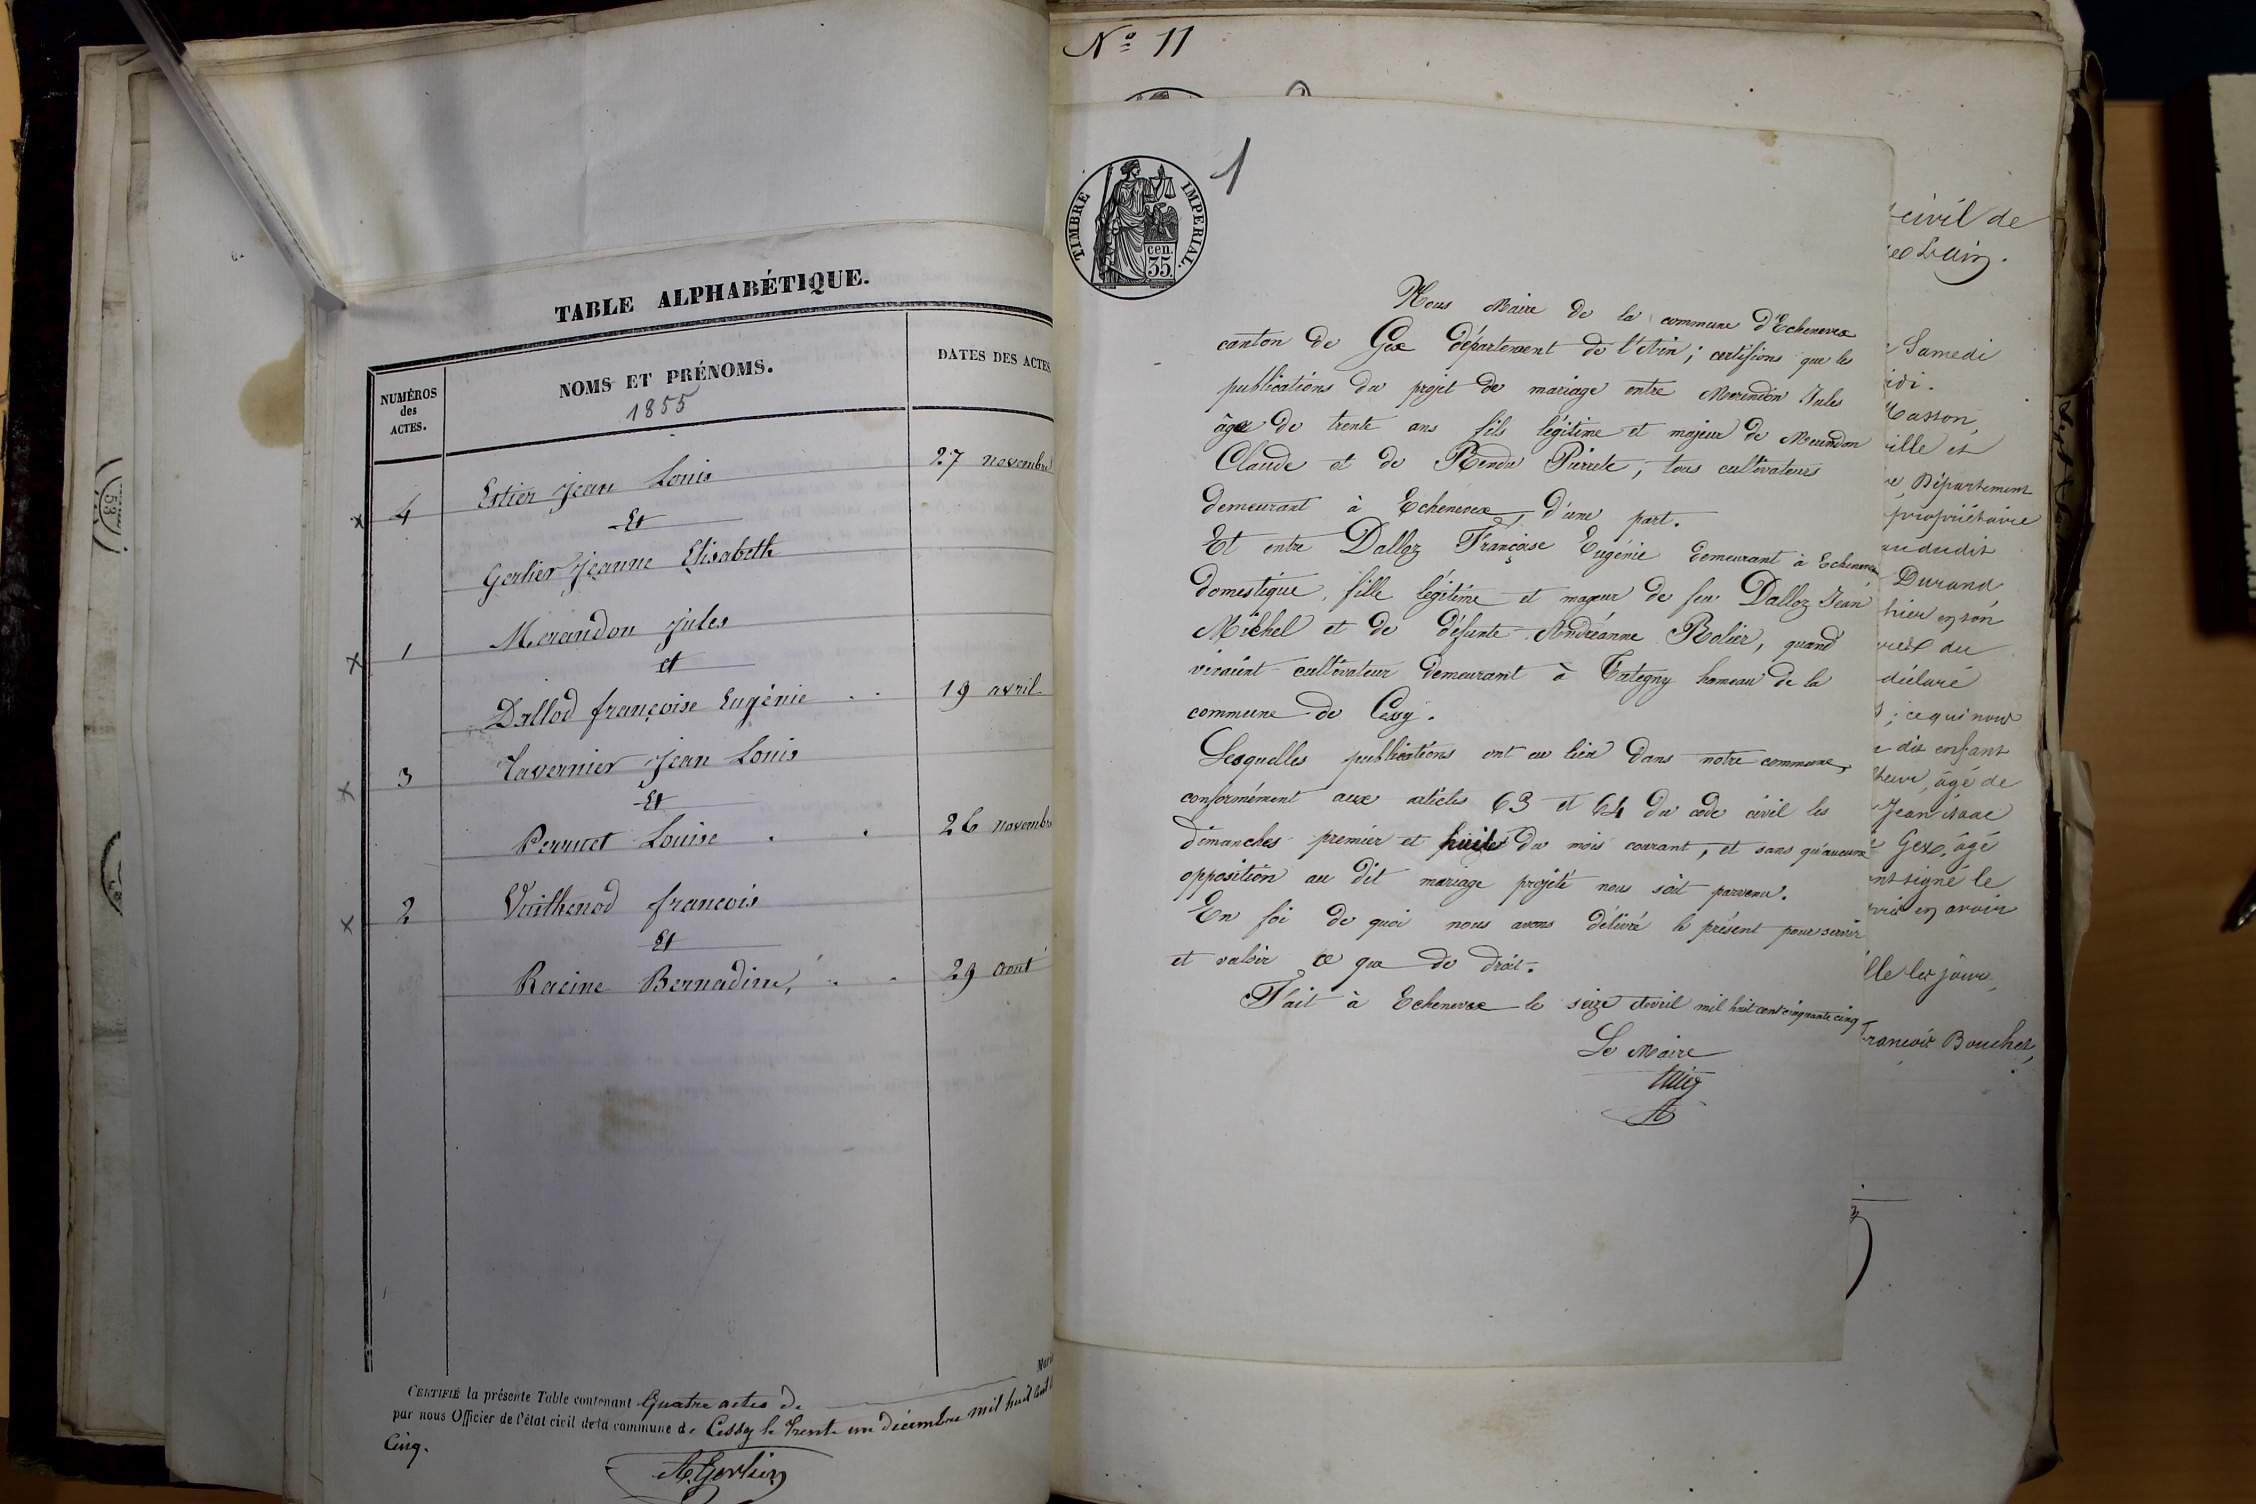 TABLE ALPHABÉTIQUE.
NUMÉROS des ACTES.
NOMS ET PRÉNOMS.
1855
DATES DES ACTES
4 Estier Jean Louis 27 novembre
Et
Gerlier Jeanne Elisabeth
1 Morandon Jules
et
Dallod françoise Eugénie . . 19 avril
3 Tavernier Jean Louis
Et
Perruet Louise . . 26 novembre
2 Vuilhenod francois
Et
Racine Bernadine, . . 29 aout
CERTIFIÉ la présente Table contenant Quatre actes de
par nous Officier de l'état civil de la commune de Cessy le Trente un décembre mil huit cent
Cinq.
A. Gerlier
53
N° 11
1
TIMBRE IMPERIAL.
cen.
35.
Nous Maire de la commune d'Echenevex
canton de Gex département de l'Ain ; certifions que les
publications du projet de mariage entre Morindon Jules
âgé de trente ans fils légitime et majeur de Morindon
Claude et de Rendu Pierrete, tous cultivateurs
demeurant à Echenevex, d'une part.
Et entre Dalloz Françoise Eugénie demeurant à Echenevex
domestique, fille légitime et majeur de feu Dalloz Jean
Michel et de défunte Andréanne Rolier, quand
vivaint cultivateur demeurant à Tategny hameau de la
commune de Cessy.
Lesquelles publications ont eu lieu dans notre commune,
conformément aux articles 63 et 64 du code civil les
dimanches premier et huit du mois courant, et sans qu'aucune
opposition au dit mariage projeté nous soit parvenu.
En foi de quoi nous avons délivré le présent pour servir
et valoir ce que de droit.
Fait à Echenevex le seize Avril mil huit cent cinquante cinq
Le Maire
civil de
Samedi
Masson,
ville et
Département
propriétaire
au dudit
Durand
hier en son
du
déclaré
; ce qui nous
dit enfant
âgé de
Jean isaac
Gex, âgé
ont signé le
en avoir
les jour,
François Bouchet,